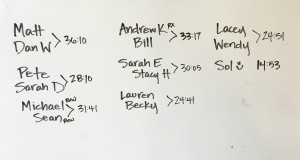 Matt
Dan W > 36:10
Pete
Sarah D > 28:10
Michael RX
Sean RX > 31:41
Andrew K RX
Bill > 33:17
Sarah E
Stacy H > 30:05
Lauren
Becky > 24:41
Lacey
Wendy > 24:51
Sol 14:53